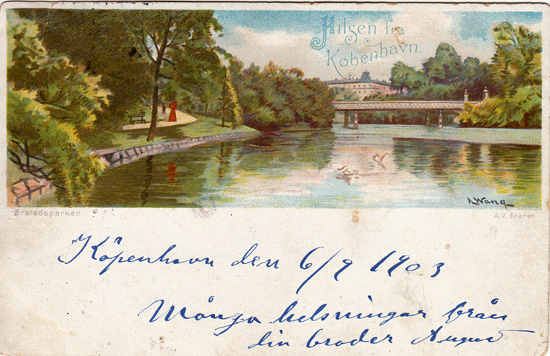 Hilsen fra
København.
A. Wang
Ørstedsparken.
A.V. Eneret.
Köpenhavn den 6/9 1903
Många helsningar från
din broder August